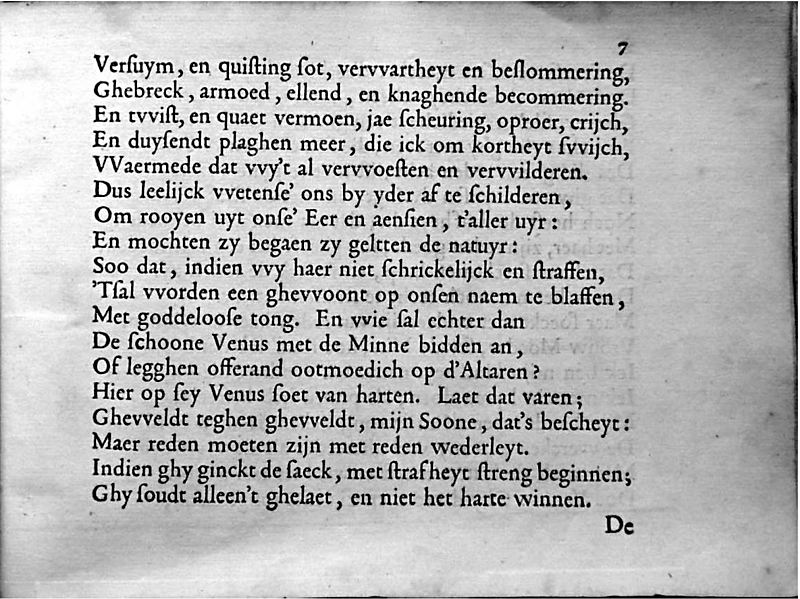 7
Verſuym, en quiſting ſot, vervvartheyt en beſlommering,
Ghebreck, armoed, ellend, en knaghende becommering.
En tvviſt, en quaet vermoen, jae ſcheuring, oproer, crijch,
En duyſendt plaghen meer, die ick om kortheyt ſvvijch,
VVaermede dat vvy't al vervvoeſten en vervvilderen.
Dus leelijck vvetenſe' ons by yder af te ſchilderen,
Om rooyen uyt onſe' Eer en aenſien, t'aller uyr:
En mochten zy begaen zy geltten de natuyr:
Soo dat, indien vvy haer niet ſchrickelijck en ſtraffen,
'Tſal vvorden een ghevvoont op onſen naem te blaffen,
Met goddelooſe tong. En vvie ſal echter dan
De ſchoone Venus met de Minne bidden an,
Of legghen offerand ootmoedich op d'Altaren?
Hier op ſey Venus ſoet van harten. Laet dat varen;
Ghevveldt teghen ghevveldt, mijn Soone, dat's beſcheyt:
Maer reden moeten zijn met reden wederleyt.
Indien ghy ginckt de ſaeck, met ſtrafheyt ſtreng beginnen;
Ghy ſoudt alleen't ghelaet, en niet het harte winnen.
De